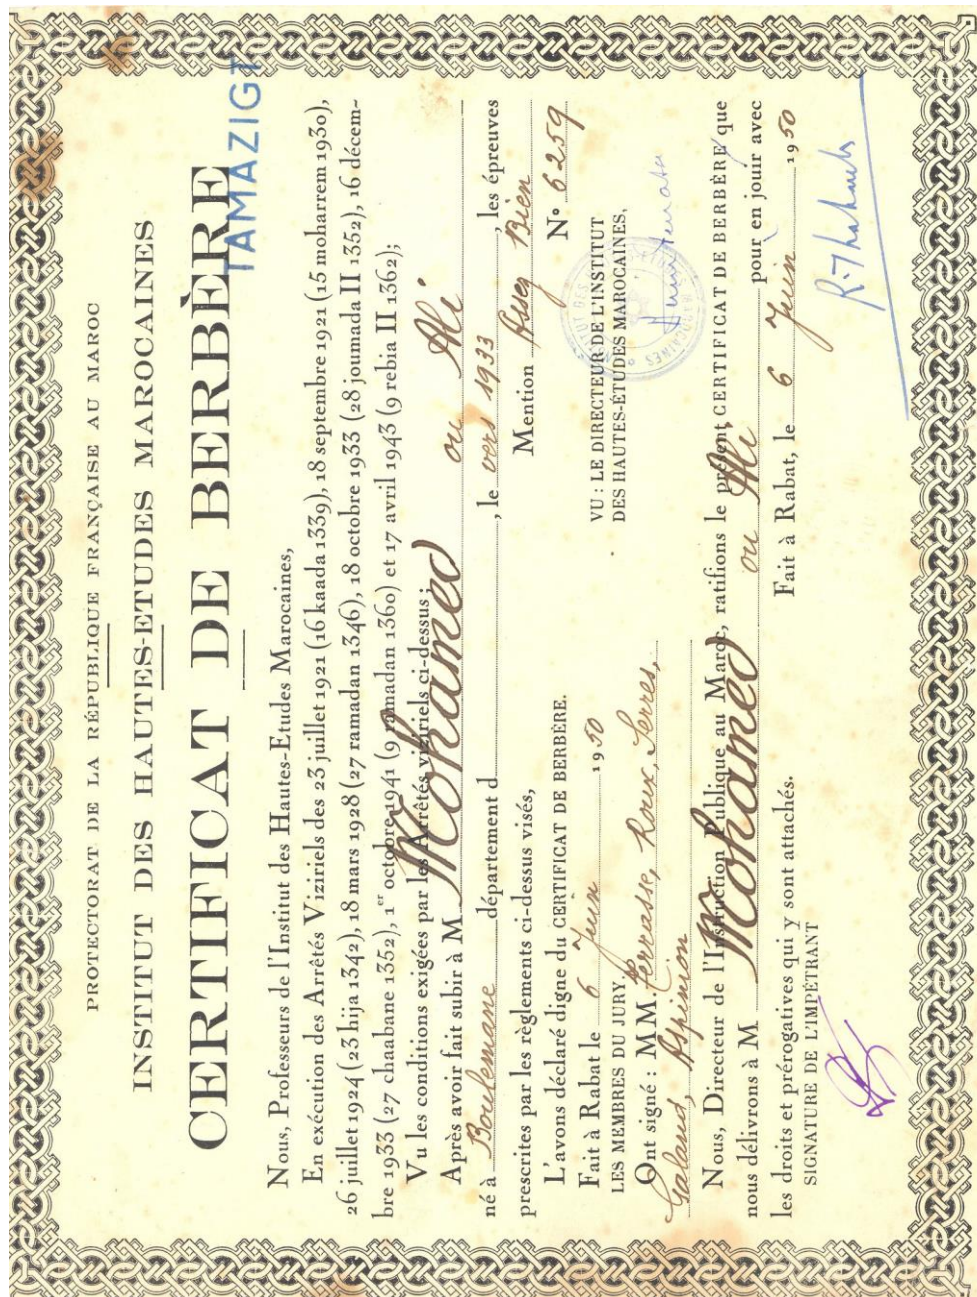 PROTECTORAT DE LA RÉPUBLIQUE FRANÇAISE AU MAROC
INSTITUT DES HAUTES-ETUDES MAROCAINES
CERTIFICAT DE BERBÈRE
TAMAZIGT
Nous, Professeurs de l'Institut des Hautes-Etudes Marocaines,
En exécution des Arrêtés Viziriels des 23 juillet 1921 (16 kaada 1339), 18 septembre 1921 (15 moharrem 1930),
26 juillet 1924 (23 hija 1342), 18 mars 1928 (27 ramadan 1346), 18 octobre 1933 (28 joumada II 1352), 16 décem-
bre 1933 (27 chaabane 1352), 1er octobre 1941 (9 ramadan 1360) et 17 avril 1943 (9 rebia II 1362);
Vu les conditions exigées par les Arrêtés viziriels ci-dessus ;
Après avoir fait subir à M Mohamed ou Ali
né à Boulemane département d , le vers 1933 , les épreuves
prescrites par les règlements ci-dessus visés, Mention Assez Bien
L'avons déclaré digne du CERTIFICAT DE BERBÈRE. N° 6259
Fait à Rabat le 6 Juin 1950
VU : LE DIRECTEUR DE L'INSTITUT
DES HAUTES-ÉTUDES MAROCAINES,
LES MEMBRES DU JURY,
Ont signé : MM. Terrasse, Roux, Serres,
Galand, Aspinion
Nous, Directeur de l'Instruction Publique au Maroc, ratifions le présent CERTIFICAT DE BERBÈRE que
nous délivrons à M Mohamed ou Ali pour en jouir avec
les droits et prérogatives qui y sont attachés.
Fait à Rabat, le 6 Juin 1950
SIGNATURE DE L'IMPÉTRANT